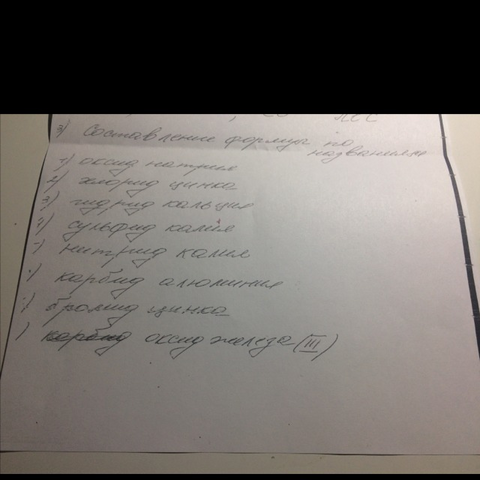 3) Составление формул по
названиям
1) оксид натрия
2) хлорид цинка
3) гидрид кальция
сульфид калия
нитрид калия
карбид алюминия
бромид цинка
карбид оксид железа (III)